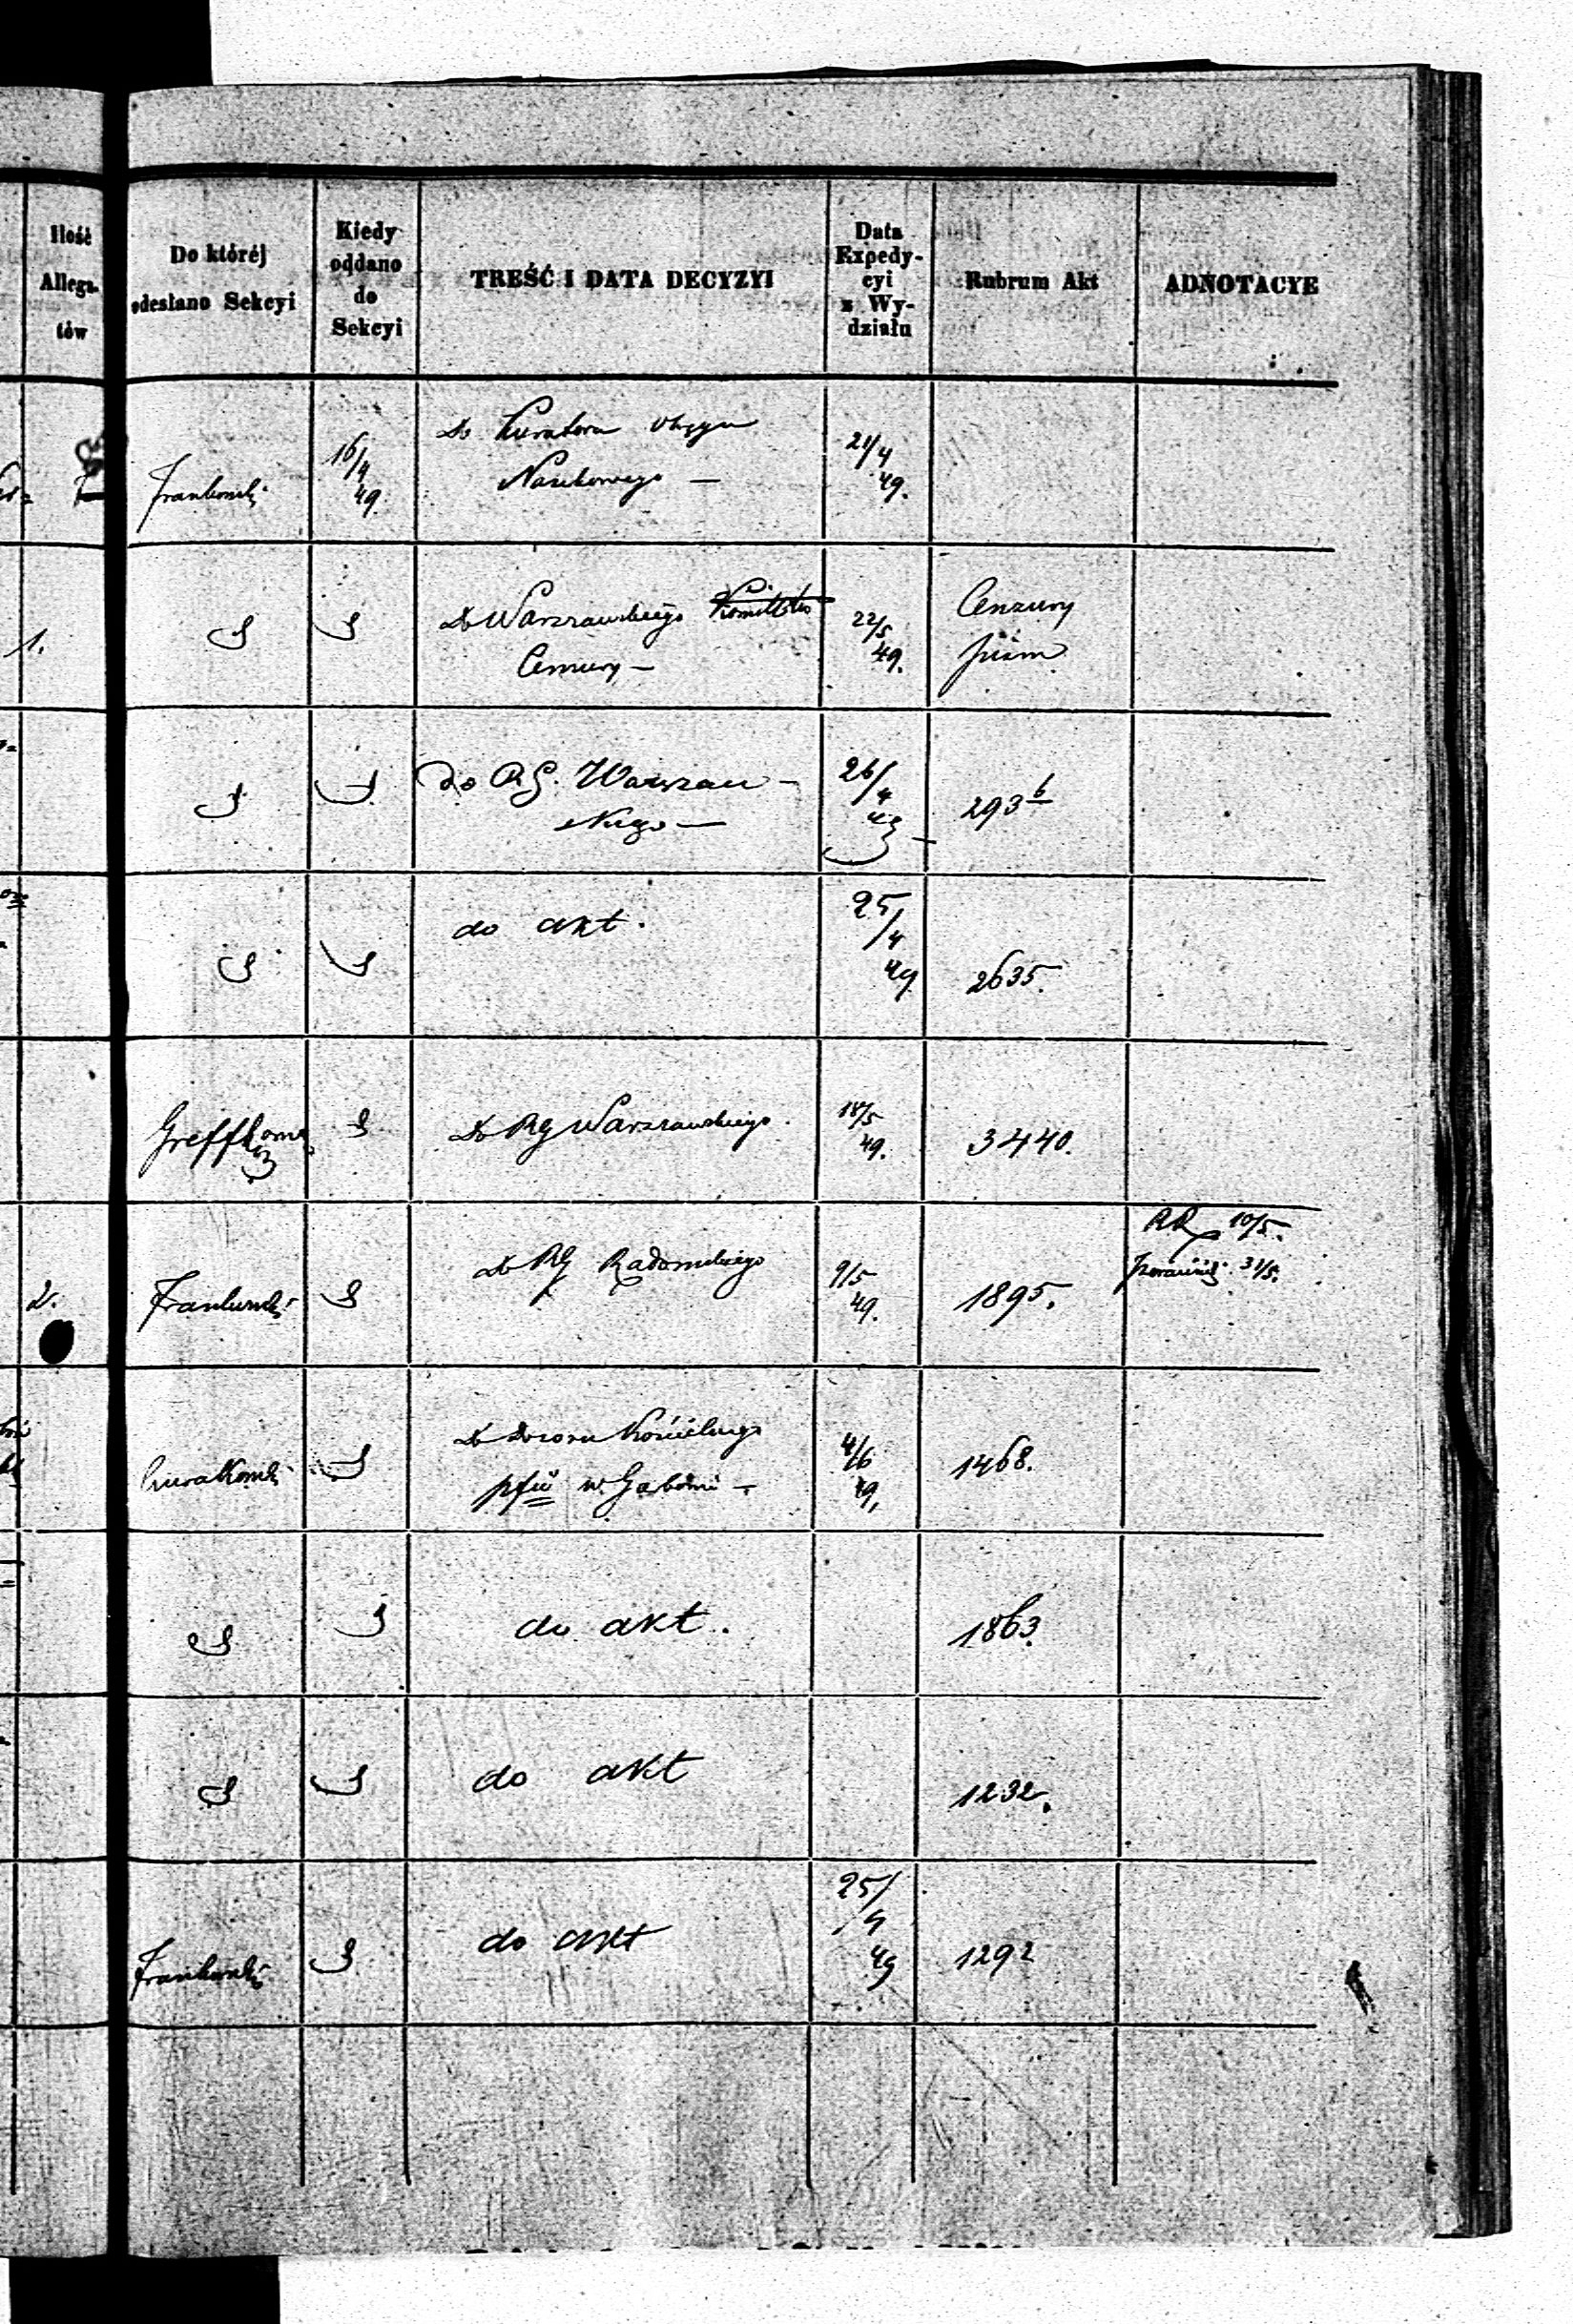 Ilość
Allega-
tów
Do któréj
odesłano Sekcyi
Kiedy
oddano
do
Sekcyi
TREŚĆ I DATA DECYZYI
Data
Expedy-
cyi
z Wy-
działu
Rubrum Akt
ADNOTACYE
Frankowski
16/4
49.
Do Kuratora Okręgu
Naukowego —
21/4
49.
1.
Do Warszawskiego Komitetu
Cenzury —
22/5
49.
Cenzury
pism
do RG. Warszaw-
skiego —
26/4
49
293 b
do akt.
25/4
49
2635.
Do RG Warszawskiego.
18/5
49.
3440.
2.
Frankowski
Do RG Radomskiego
9/5
49.
1895.
10/5.
31/5.
Do Dozoru Kościelnego
w
4/6
49,
1468.
do akt.
1863.
do akt
1232.
Frankowski
do akt
25/4
49
1292